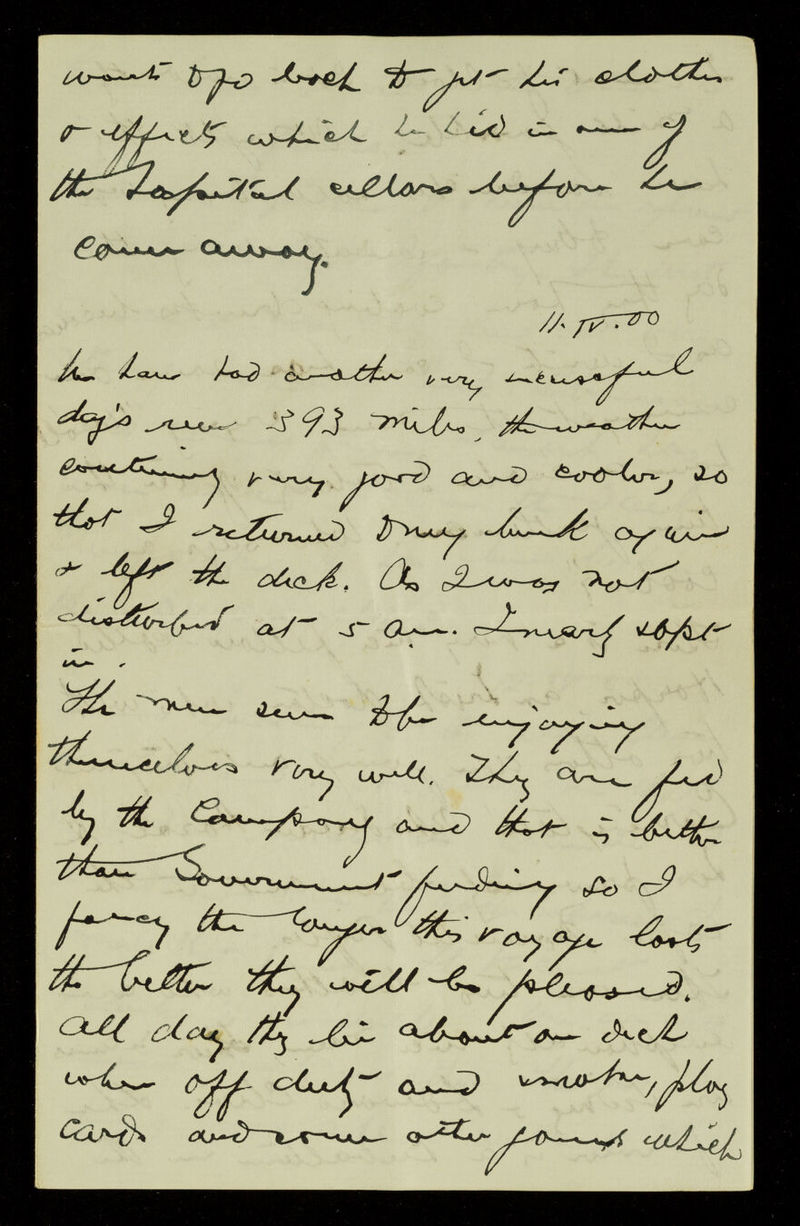 wants to go back to get his clothes
& effects which he hid in one of
the Hospital cellars before he
came away.
11.IV.00
We have had another very successful
day's run 393 miles, the weather
continuing very good and cooler, so
that I returned to my bunk again
& left the deck. As I was not
disturbed at 5 am. I nearly slept
in.
The men seem to be enjoying
themselves very well. They are fed
by the Company and that is better
than Government feeding so I
fancy the longer this voyage lasts
the better they will be pleased.
All day they lie about on deck
when off duty and smoke, play
cards and some other games which